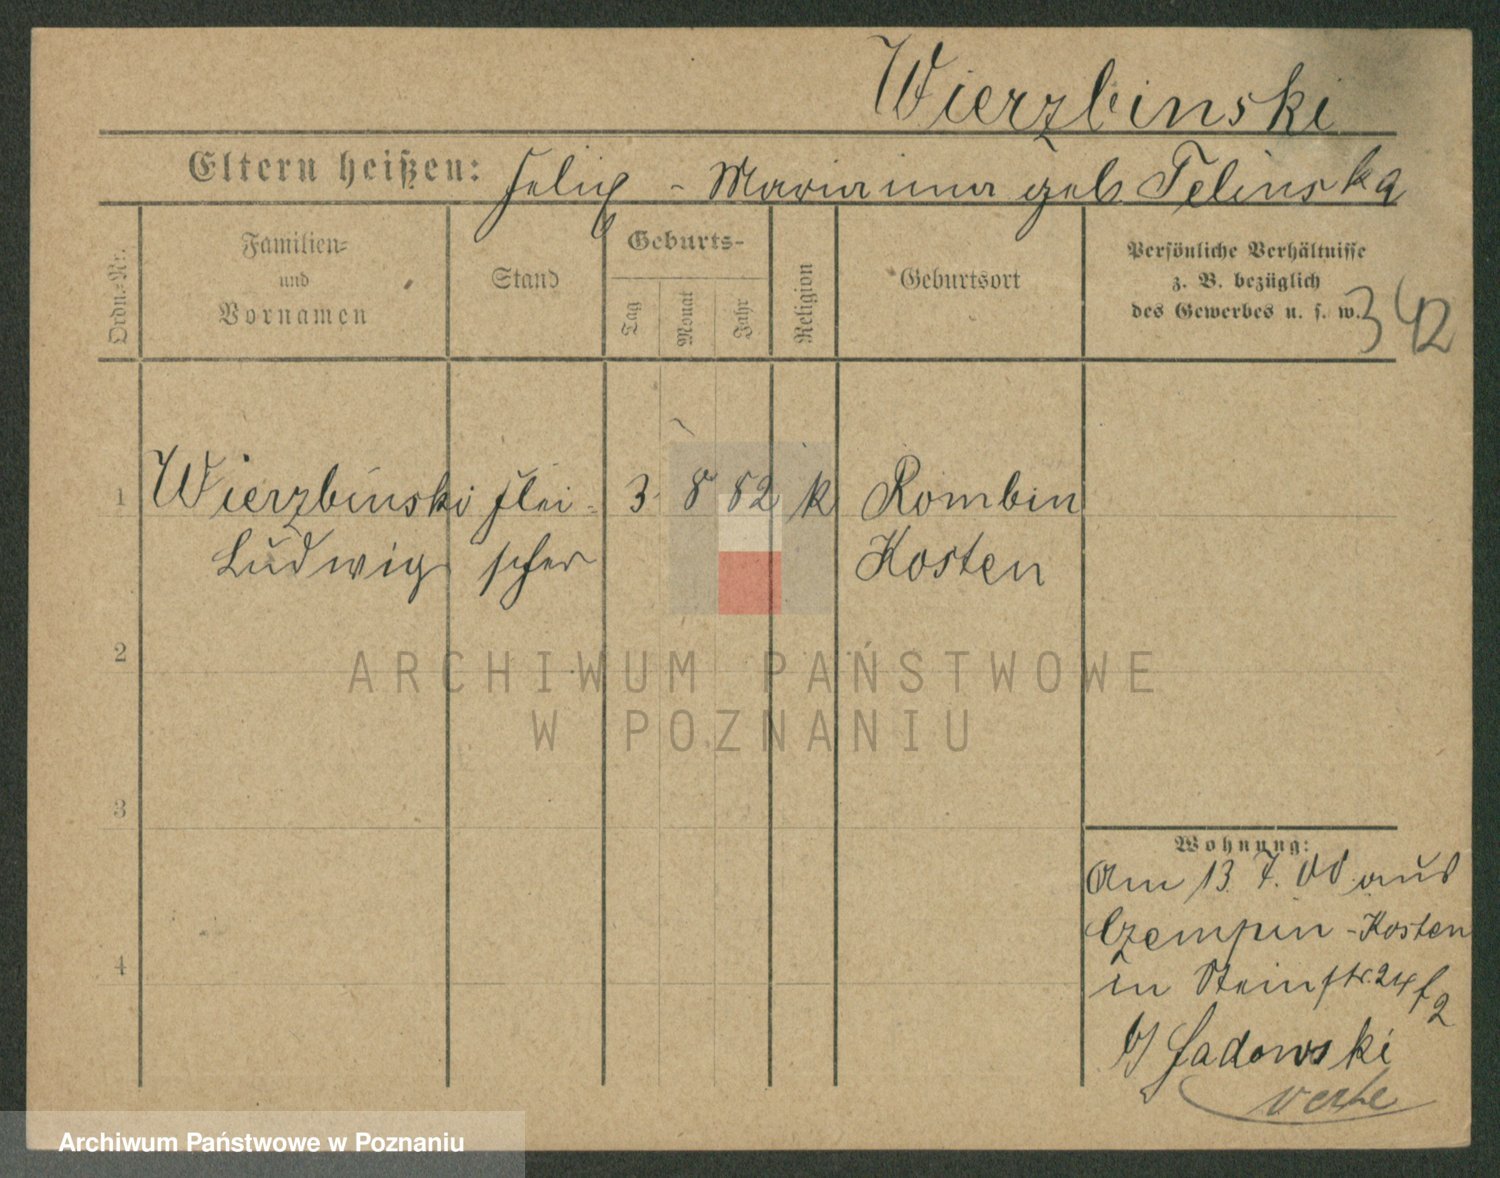 Wierzbinski
Eltern heißen: Felix - Marianna geb. Telinska
Ordn.-Nr.
Familien-
und
Vornamen
Stand
Geburts-
Tag
Monat
Jahr
Religion
Geburtsort
Persönliche Verhältnisse
z. B. bezüglich
des Gewerbes u. s. w.
342
1 Wierzbinski Flei- 3 8 82 k Rombin
Ludwig scher Kosten
2
3
4
Wohnung:
Am 13. 7. 00 aus
Czempin - Kosten
in Steinstr. 24
b/ Sadowski
ARCHIWUM PAŃSTWOWE
W POZNANIU
Archiwum Państwowe w Poznaniu